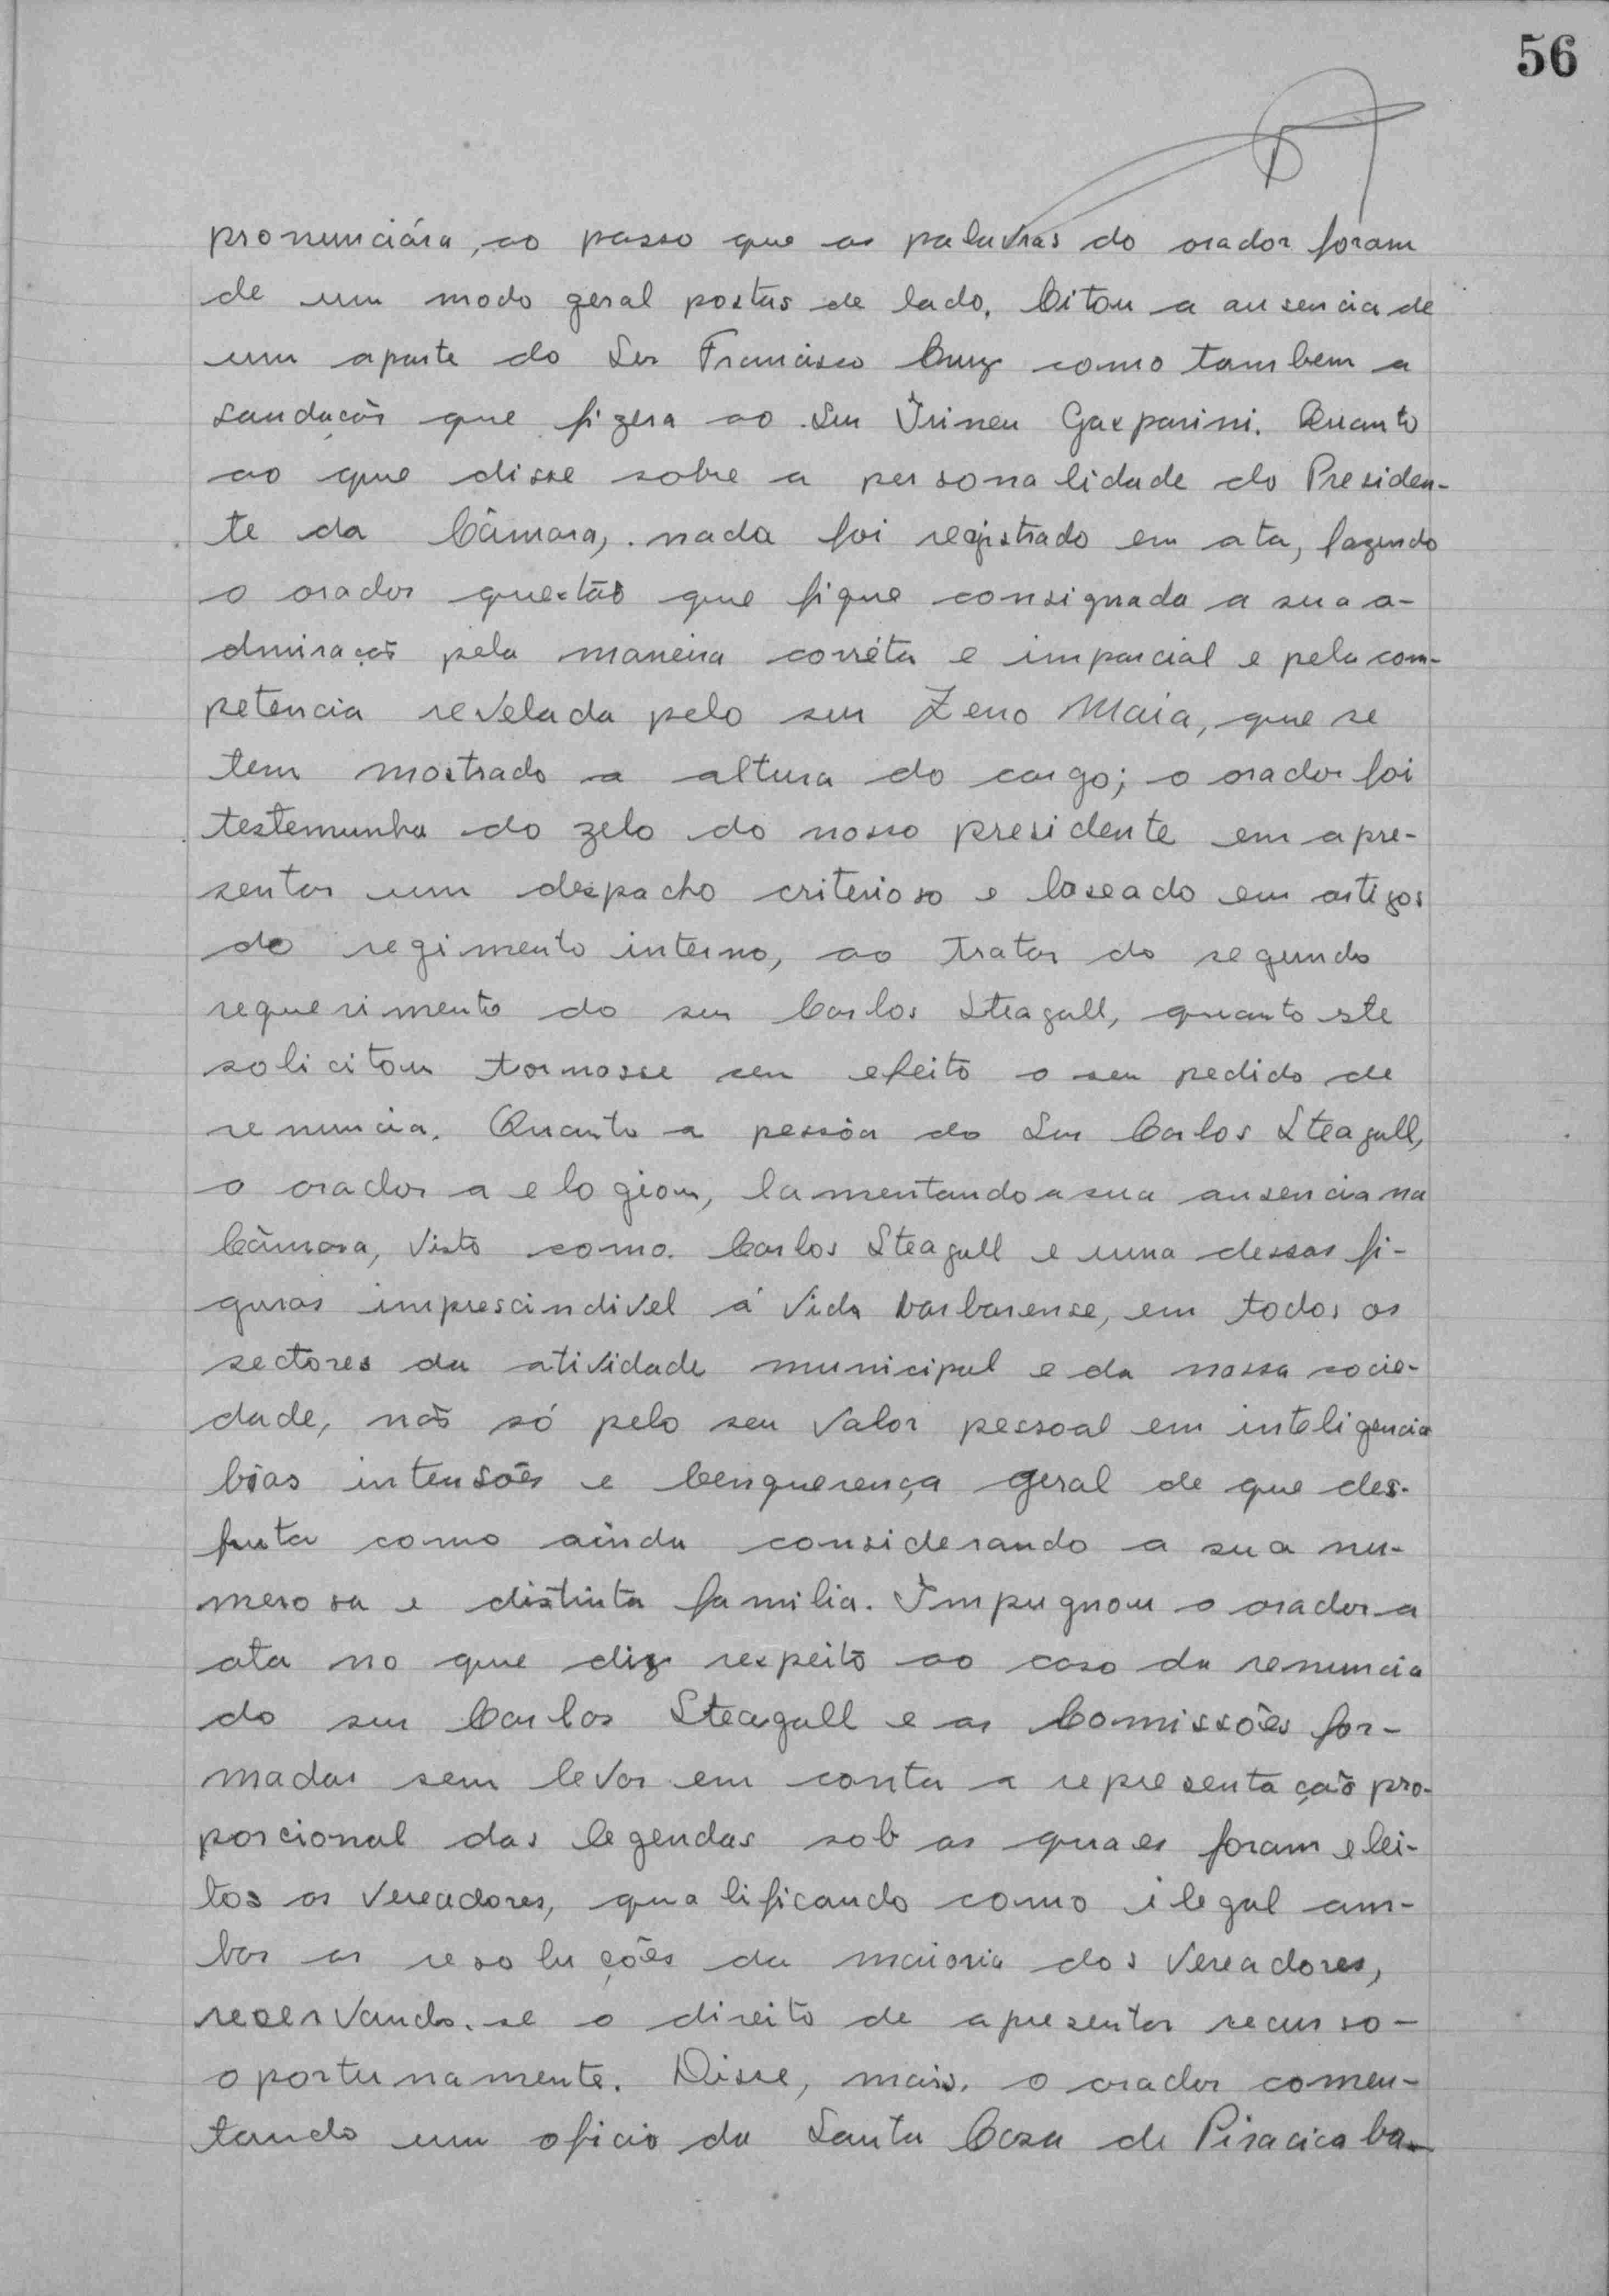 56
pronunciára, ao passo que as palavras do orador foram
de um modo geral postas de lado. Citou a ausencia de
um aparte do Snr Francisco Cruz como tambem a
saudação que fizera ao Snr Irineu Gasparini. Quanto
ao que disse sobre a personalidade do Presiden-
te da Câmara, nada foi registrado em ata, fazendo
o orador questão que fique consignada a sua a-
dmiração pela maneira corréta e imparcial e pela com-
petencia revelada pelo snr Zeno Maia, que se
tem mostrado a altura do cargo; o orador foi
testemunha do zelo do nosso presidente em apre-
sentar um despacho criterioso e baseado em artigos
do regimento interno, ao tratar do segundo
requerimento do snr Carlos Steagall, quanto este
solicitou tornasse sem efeito o seu pedido de
renuncia. Quanto a pessôa do Snr Carlos Steagall,
o orador a elogiou, lamentando a sua ausencia na
Câmara, visto como Carlos Steagall e uma dessas fi-
guras imprescindivel á vida barbarense, em todos os
sectores da atividade municipal e da nossa socie-
dade, não só pelo seu valor pessoal em inteligencia
bôas intensões e benquerença geral de que des-
fruta como ainda considerando a sua nu-
merosa e distinta familia. Impugnou o orador a
ata no que diz respeito ao caso da renuncia
do snr Carlos Steagall e as Comissões for-
madas sem levar em conta a representação pro-
porcional das legendas sob as quaes foram elei-
tos os vereadores, qualificando como ilegal am-
bas as resoluções da maioria dos vereadores,
reservando-se o direito de apresentar recurso-
oportunamente. Disse, mais, o orador comen-
tando um oficio da Santa Casa de Piracicaba-